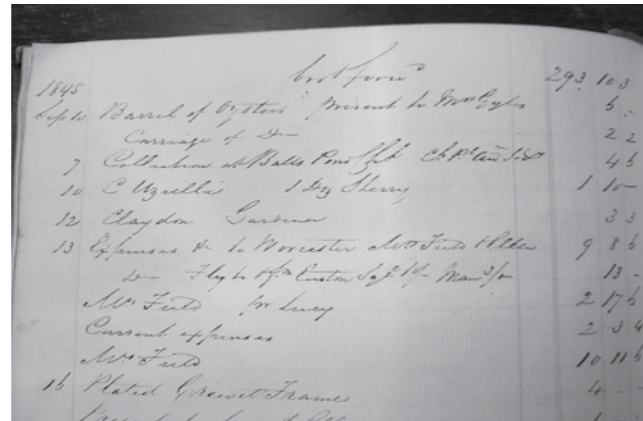 brot forwd 293 10 3
1845
Sept Barrel of Oysters present to Mrs Eyles 5 -
Carriage of Do 2 2
7 Collection at Balls Pond 4 6
10 C Uzielli 1 Doz Sherry 1 10 -
12 Claydon Gardener 3 3
13 Expenses to Worcester Mrs Field & Ellen 9 8 6
Do Fly to & fm Euston Sqe 10/- Man 3/- 13 -
Mrs Field for Lucy 2 17 6
Current expenses 2 3 4
Mrs Field 10 11 6
16 Plated Cruet Frame 4 - -